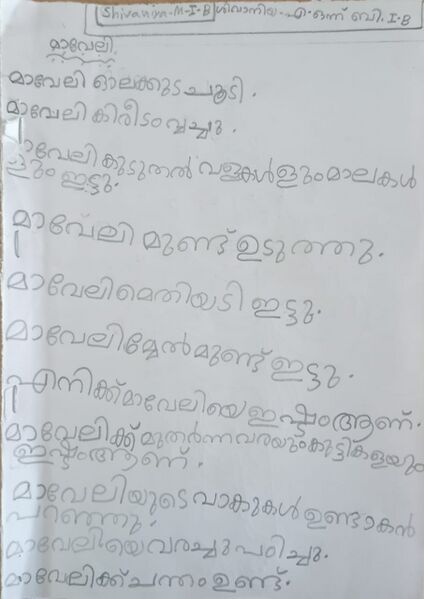 Shivaniya.M-I-B ശിവാനിയ. എം ഒന്ന് ബി. I-B
മാവേലി.
മാവേലി ഓലക്കുട ചൂടി.
മാവേലി കിരീടം വച്ചു.
മാവേലി കൂടുതൽ വളകൾളും മാലകൾ
ളും ഇട്ടു.
മാവേലി മുണ്ട് ഉടുത്തു.
മാവേലി മെതിയടി ഇട്ടു.
മാവേലി മേൽമുണ്ട് ഇട്ടു.
എനിക്ക് മാവേലിയെ ഇഷ്ടം ആണ്.
മാവേലിക്ക് മുതർന്നവരയും കുട്ടികളയും
ഇഷ്ടം ആണ്.
മാവേലിയുടെ വാകുകൾ ഉണ്ടാകൻ
പറഞ്ഞു.
മാവേലിയെ വരച്ചു പഠിച്ചു.
മാവേലിക്ക് ചന്തം ഉണ്ട്.